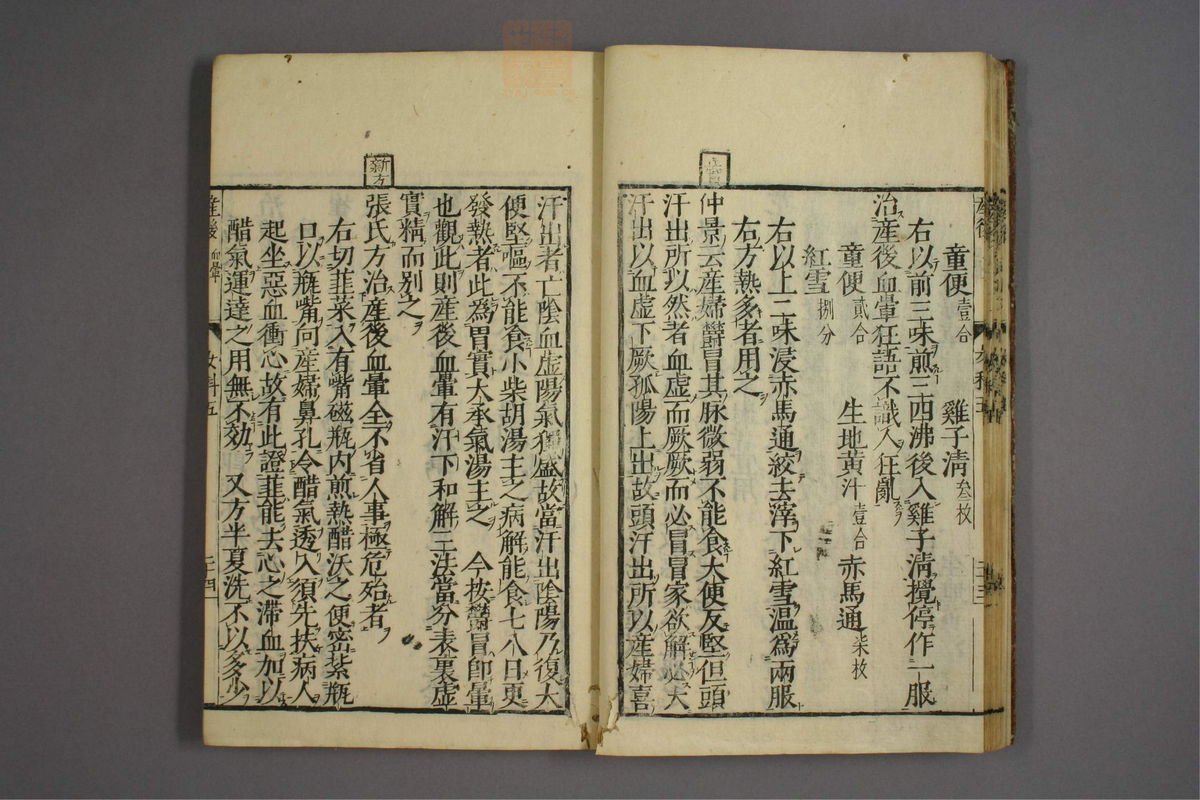 童便壹合 雞子清叁枚
右以前三味煎三四沸後入雞子清攪停作一服
治產後血暈狂語不識人狂亂
童便貳合 生地黄汁壹合 赤馬通柒枚
紅雪捌分
右以上二味浸赤馬通絞去滓下紅雪温爲兩服
右方熱多者用之
仲景云產婦欝冒其脉微弱不能食大便反堅但頭
汗出所以然者血虚而厥厥而必冒冒家欲解必大
汗出以血虚下厥孤陽上出故頭汗出所以產婦喜
汗出者亡陰血虚陽氣獨盛故當汗出陰陽乃復大
便堅嘔不能食小柴胡湯主之病解能食七八日更
發熱者此爲胃實大承氣湯主之 今按欝冒即暈
也觀此則產後血暈有汗下和解三法當分表裏虚
實精而别之
新方
張氏方治產後血暈全不省人事極危殆者
右切韮菜入有嘴磁瓶内煎熱醋沃之便密紥瓶
口以瓶嘴向產婦鼻孔令醋氣透入須先扶病人
起坐惡血衝心故有此證韮能去心之滯血加以
醋氣運達之用無不効 又方半夏洗不以多少
產後 血暈
女科五
三十四